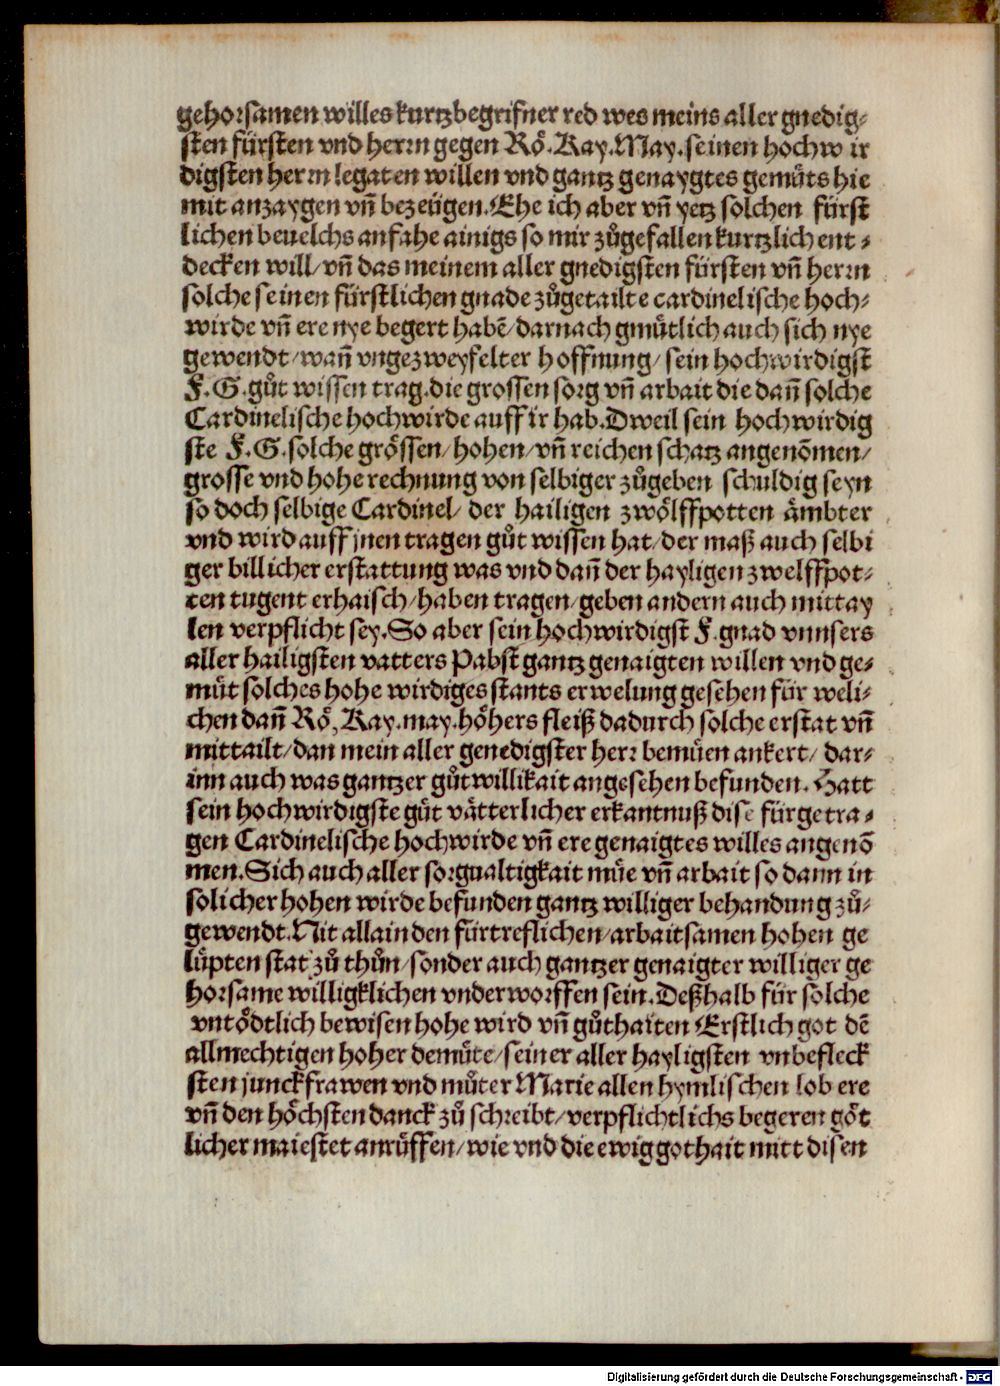 gehorsamen willes kurtzbegrifner red wes meins aller gnedig⸗
sten fürsten vnd herrn gegen Rö. Kay. May. seinen hochw ir
digsten herrn legaten willen vnd gantz genaygtes gemüts hie
mit anzaygen vñ bezeügen. Ehe ich aber vñ yetz solchen fürst
lichen beuelchs anfahe ainigs so mir zůgefallen kurtzlich ent⸗
decken will/ vñ das meinem aller gnedigsten fürsten vñ herrn
solche seinen fürstlichen gnade zůgetailte cardinelische hoch⸗
wirde vñ ere nye begert habē/ darnach gmütlich auch sich nye
gewendt/ wañ vngezweyfelter hoffnung/ sein hochwirdigst
F. G. gůt wissen trag. die grossen sorg vñ arbait die dañ solche
Cardinelische hochwirde auff ir hab. Dweil sein hochwirdig
ste F. G. solche grössen/ hohen/ vñ reichen schatz angenōmen/
grosse vnd hohe rechnung von selbiger zůgeben schuldig seyn
so doch selbige Cardinel/ der hailigen zwölffpotten ämbter
vnd wird auff jnen tragen gůt wissen hat/ der maß auch selbi
ger billicher erstattung was vnd dañ der hayligen zwelffpot⸗
ten tugent erhaisch/ haben tragen/ geben andern auch mittay
len verpflicht sey. So aber sein hochwirdigst F. gnad vnnsers
aller hailigsten vatters Pabst gantz genaigten willen vnd ge⸗
müt solches hohe wirdiges stants erwelung gesehen für weli⸗
chen dañ Rö, Kay. may. höhers fleiß dadurch solche erstat vñ
mittailt/ dan mein aller genedigster herr bemüen ankert/ dar⸗
inn auch was gantzer gůtwillikait angesehen befunden. Hatt
sein hochwirdigste güt vätterlicher erkantnuß dise fürgetra⸗
gen Cardinelische hochwirde vñ ere genaigtes willes angenō
men. Sich auch aller sorgualtigkait müe vñ arbait so dann in
solicher hohen wirde befunden gantz williger behandung zů⸗
gewendt. Nit allain den fürtreflichen/ arbaitsamen hohen ge
lüpten stat zů thůn/ sonder auch gantzer genaigter williger ge
horsame willigklichen vnderworffen sein. Deßhalb für solche
vntödtlich bewisen hohe wird vñ gůthaiten Erstlich got dē
allmechtigen hoher demüte/ seiner aller hayligsten vnbefleck
sten junckfrawen vnd můter Marie allen hymlischen lob ere
vñ den höchsten danck zů schreibt/ verpflichtlichs begeren göt
licher maiestet anrüffen/ wie vnd die ewig gothait mitt disen
Digitalisierung gefördert durch die Deutsche Forschungsgemeinschaft - DFG